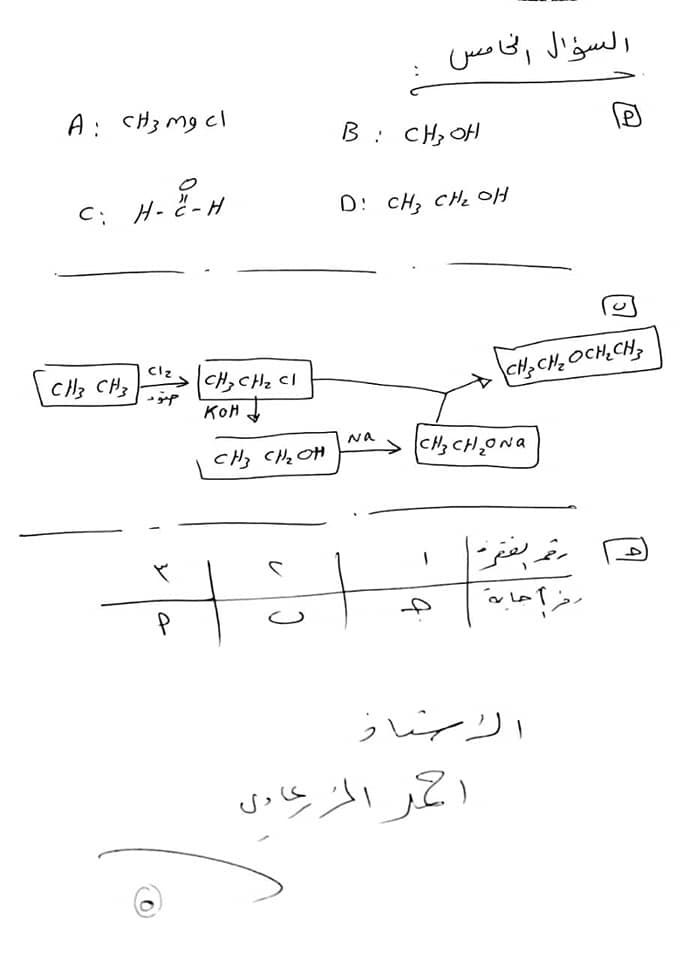 السؤال الخامس :
P
A: CH3mgcl B: CH3OH
C: H-C-H
O
D: CH3 CH2 OH
ب
CH3 CH3 Cl2 ضوء CH3CH2 Cl CH3CH2OCH2CH3
KOH
CH3 CH2OH Na CH3CH2ONa
رقم الفقرة ١ ٢ ٣ هـ
رمز الإجابة جـ ب P
الاستاذ
احمد
٥